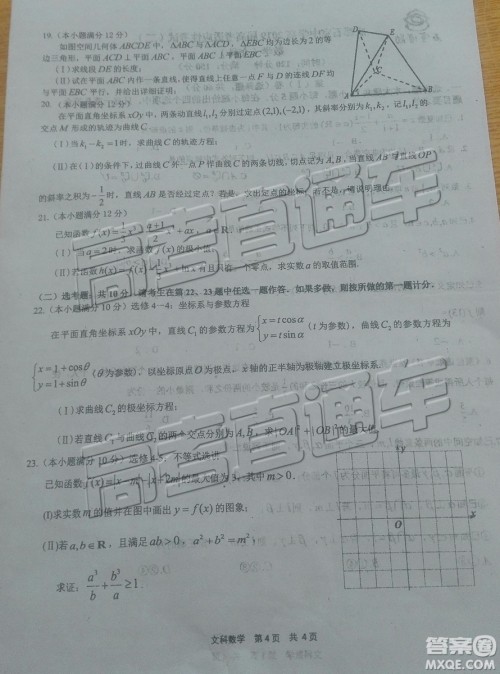 19.(本小题满分12分)
如图空间几何体ABCDE中，△ABC与△ACD，△EBC均为边长为2的等
边三角形，平面ACD⊥平面ABC，平面EBC⊥平面ABC.
(Ⅰ)求线段DE的长度；
(Ⅱ)试在平面ABCD内作一条直线，使得直线上任意一点F与D的连线DF均
与平面EBC平行，并给出详细证明.
D
E
A
B
20.(本小题满分12分)
在平面直角坐标系xOy中，两条动直线l₁,l₂分别过定点(2,1),(-2,1)，其斜率分别为k₁,k₂，记l₁,l₂的
交点M形成的轨迹为曲线C.
(Ⅰ)若k₁-k₂=1时，求曲线C的轨迹方程；
(Ⅱ)在(Ⅰ)的条件下，过直线
作曲线C的两条切线，切点记为A,B，当直线AB与OP
的斜率之积为-1/2时，直线AB是否经过定点？若是，求出定点的坐标；若
21.(本小题满分12分)
已知函数f(x)=
+ax，a∈R
(Ⅰ)当a=2时，求函数f(x)的极小值；
(Ⅱ)若函数
有且只有一个零点，求实数a的取值范围.
(二)选考题：共10分，请考生在第22、23题中任选一题作答，如果多做，则按所做的第一题计分.
22.(本小题满分10分)选修4-4：坐标系与参数方程
在平面直角坐标系xOy中，直线C₁的参数方程为{x=tcosα y=tsinα (t为参数)，
{x=1+cosθ y=1+sinθ (θ为参数)，以坐标原点O为极点，x轴的正半轴为极轴建立极坐标系.
(Ⅰ)求曲线C₂的极坐标方程；
(Ⅱ)若直线C₁与曲线C₂的两个交点分别为A,B，求|OA|²+|OB|²的最大值.
23.(本小题满分10分)选修4-5：不等式选讲
已知函数f(x)=|x-m|-|x+2m|的最大值为3，其中m>0.
(Ⅰ)求实数m的值并在图中画出y=f(x)的图象；
(Ⅱ)若a,b∈R，且满足ab>0，a²+b²=m²，
求证：a³/b+b³/a≥1.
y
O
x
文科数学 第4页 共4页
高考直通车
答案圈
www.daanquan.com